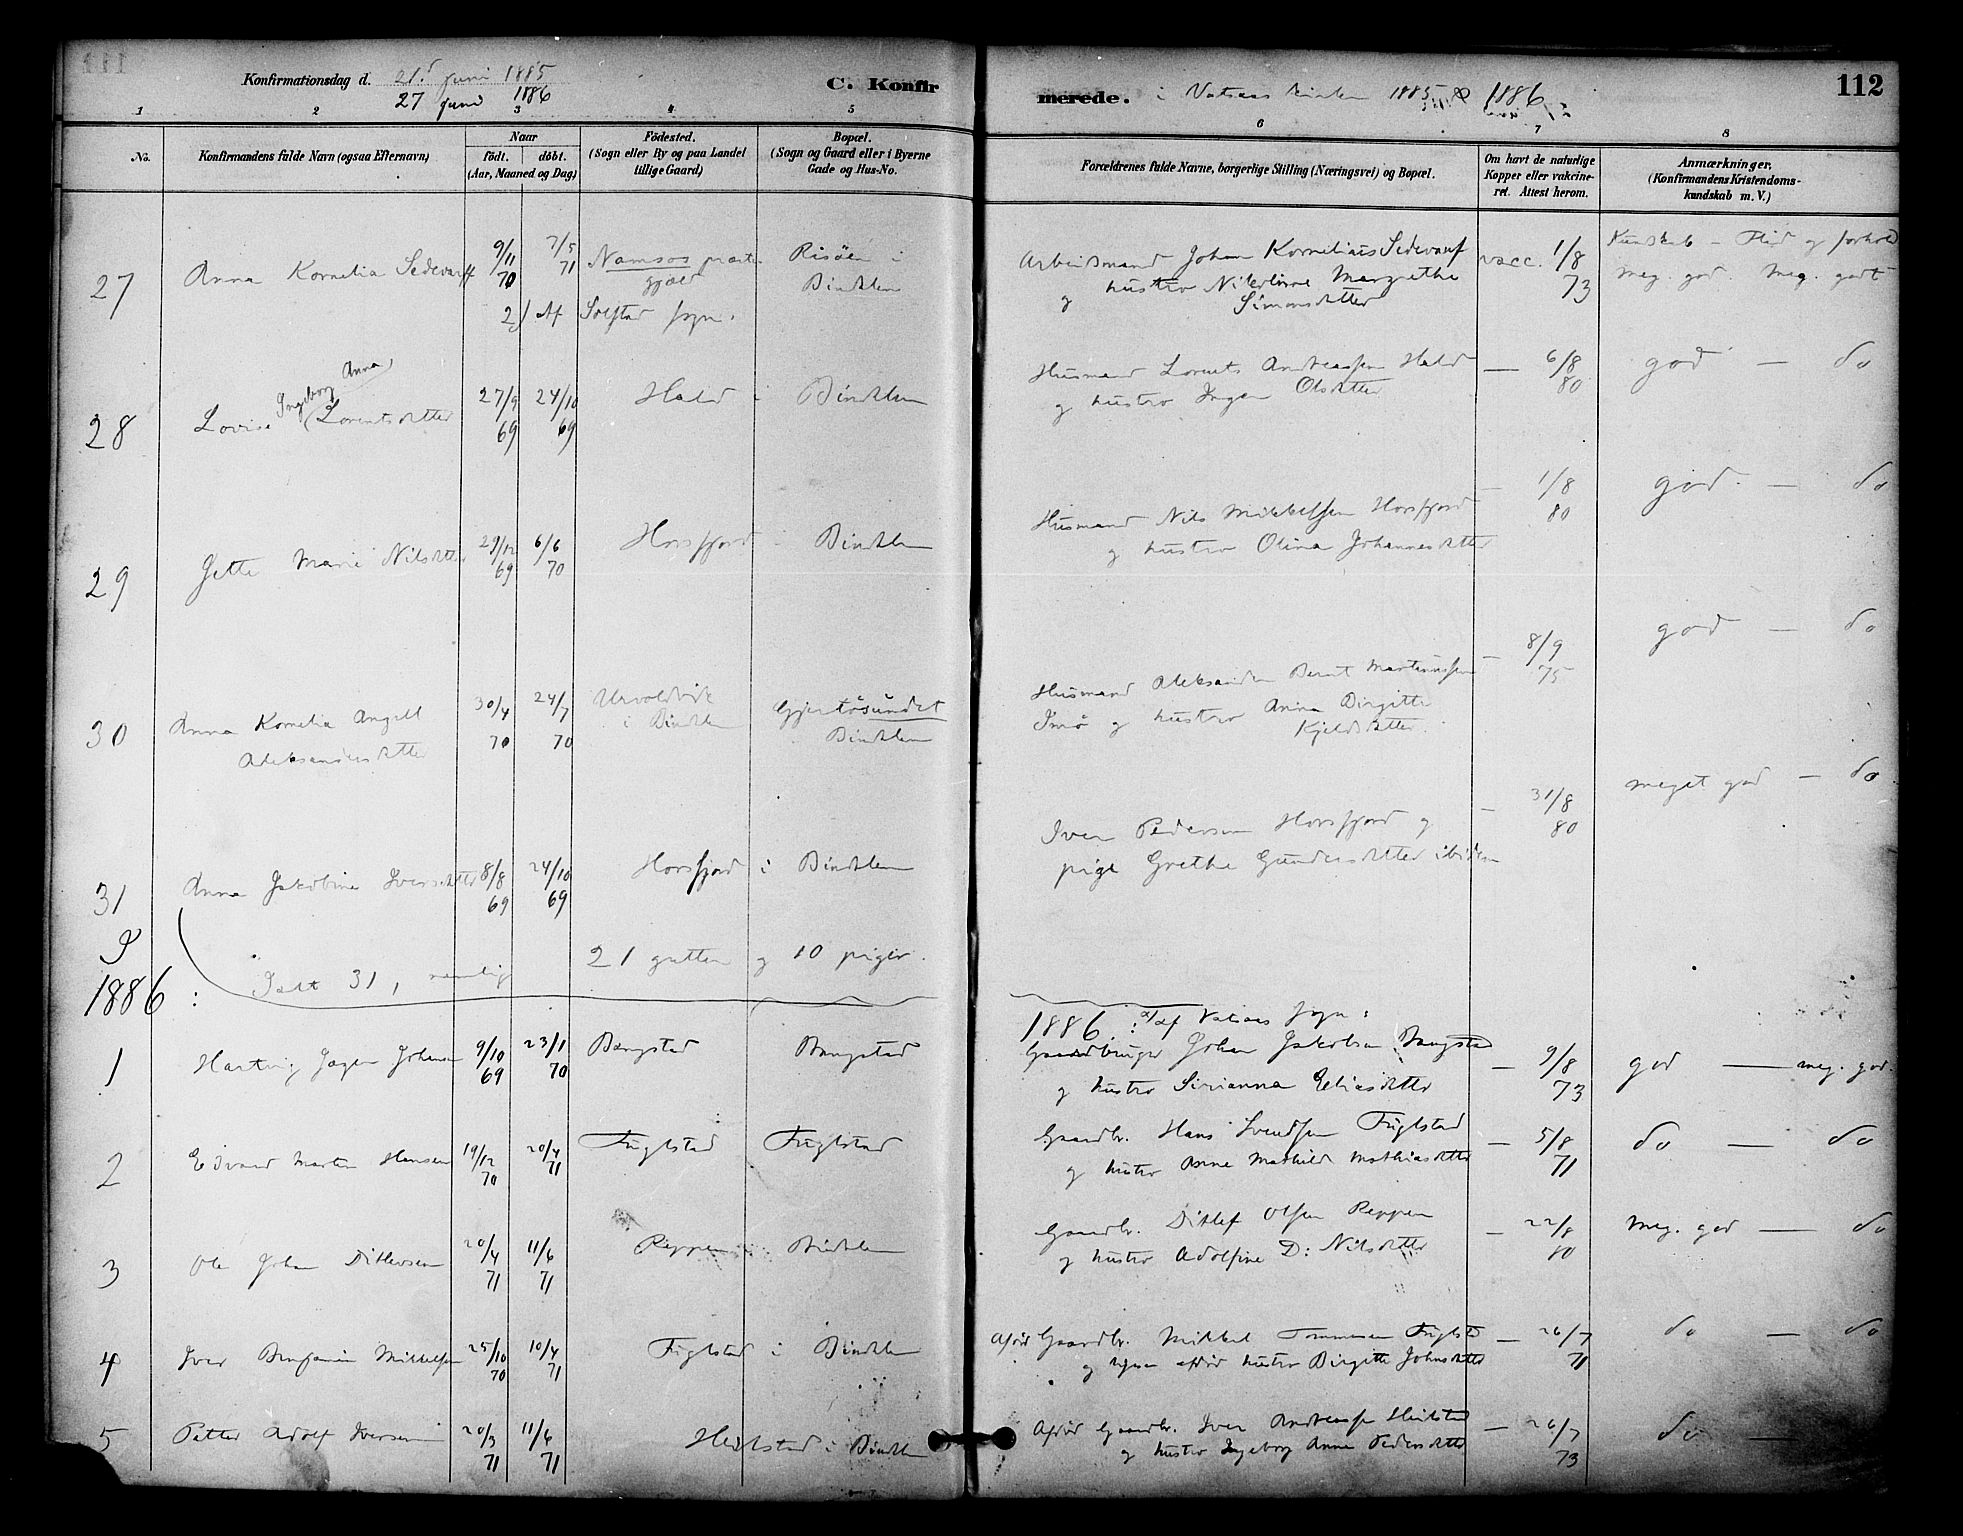 112
Konfirmationsdag d. 21. juni 1885
27 juni 1886
C. Konfir
merede. i Vatsaas kirken 1885 & 1886
1 2 3 4 5
6 7 8
No.
Konfirmandens fulde Navn (ogsaa Efternavn)
Naar
födt. döbt.
(Aar, Maaned og Dag)
Födested.
(Sogn eller By og paa Landet
tillige Gaard)
Bopæl.
(Sogn og Gaard eller i Byerne
Gade og Hus-No.
Forældrenes fulde Navne, borgerlige Stilling (Næringsvei) og Bopæl.
Om havt de naturlige
Kopper eller vakcine-
ret. Attest herom.
Anmærkninger,
(Konfirmandens Kristendoms-
kundskab m. V.)
27 Anna Kornelia Sedevarf 9/11 70 7/5 71 Namsos præste
gjæld Risöen i
Bindalen
2) Af Solstad sogn.
Arbeidsmand Johan Kornelius Sedevarf
og hustro Nikoline Margrethe
Simonsdatter
vacc. 1/8 73
Kundskab - Flid og forhold
meg. god. meg. godt
28 Lovise Ingeborg Anna Lorentsdatter 27/9 69 24/10 69 Hald i Bindalen
Husmand Lorents Andreassen Hald
og hustro Inger Olsdatter
— 6/8 80 god — do
29 Jette Marie Nilsdatter 29/12 69 6/6 70 Horsfjord - Bindalen
Husmand Nils Mikkelsen Horsfjord
og hustro Olina Johannesdatter
— 1/8 80 god. — do
30 Anna Kornelia Angell
Aleksandersdatter 30/4 70 24/7 70 Urvoldvik
i Bindalen Gjertösundet
Bindalen
Husmand Aleksander Bernt Martinussen
Imö og hustro Anna Birgitte
Kjeldsdatter.
— 8/9 75 god — do
31 Anna Jakobine Iversdatter 8/8 69 24/10 69 Horsfjord i Bindalen
Iver Pedersen Horsfjord og
pige Grethe Gundersdatter ibidem
— 31/8 80 meget god — do
Ialt 31, nemlig 21 gutter og 10 piger.
I
1886 :
1886: a/ af Vatsaas sogn:
1 Hartvig Johansen 9/10 69 23/1 70 Bangstad Bangstad
Gaardbruger Johan Jakobsen Bangstad
og hustro Sirianna Eliasdatter
— 9/8 73 god — meg. god.
2 Edvard Martin Hansen 19/12 70 20/4 71 Fuglstad Fuglstad
Gaardbr. Hans Svendsen Fuglstad
og hustro Anne Mathilde Mathiasdatter
— 5/8 71 do — do
3 Ole Johan Ditlevsen 20/4 71 11/6 71 Reppen i Bindalen
Gaardbr. Ditlef Olsen Reppen
og hustro Adolfine D: Nilsdatter
— 22/8 80 meg. god — do
4 Iver Benjamin Mikkelsen 25/10 70 10/4 71 Fuglstad i Bindalen
Afdöd Gaardbr. Mikkel Tommesen Fuglstad
og afdöd hustro Birgitte Johnsdatter
— 26/7 71 do — do
5 Petter Adolf Iversen 20/3 71 11/6 71 Heilstad i Bindalen
Afdöd Gaardbr. Iver Andreassen Heilstad
og hustro Ingeborg Anna Pedersdatter
— 26/7 73 do —